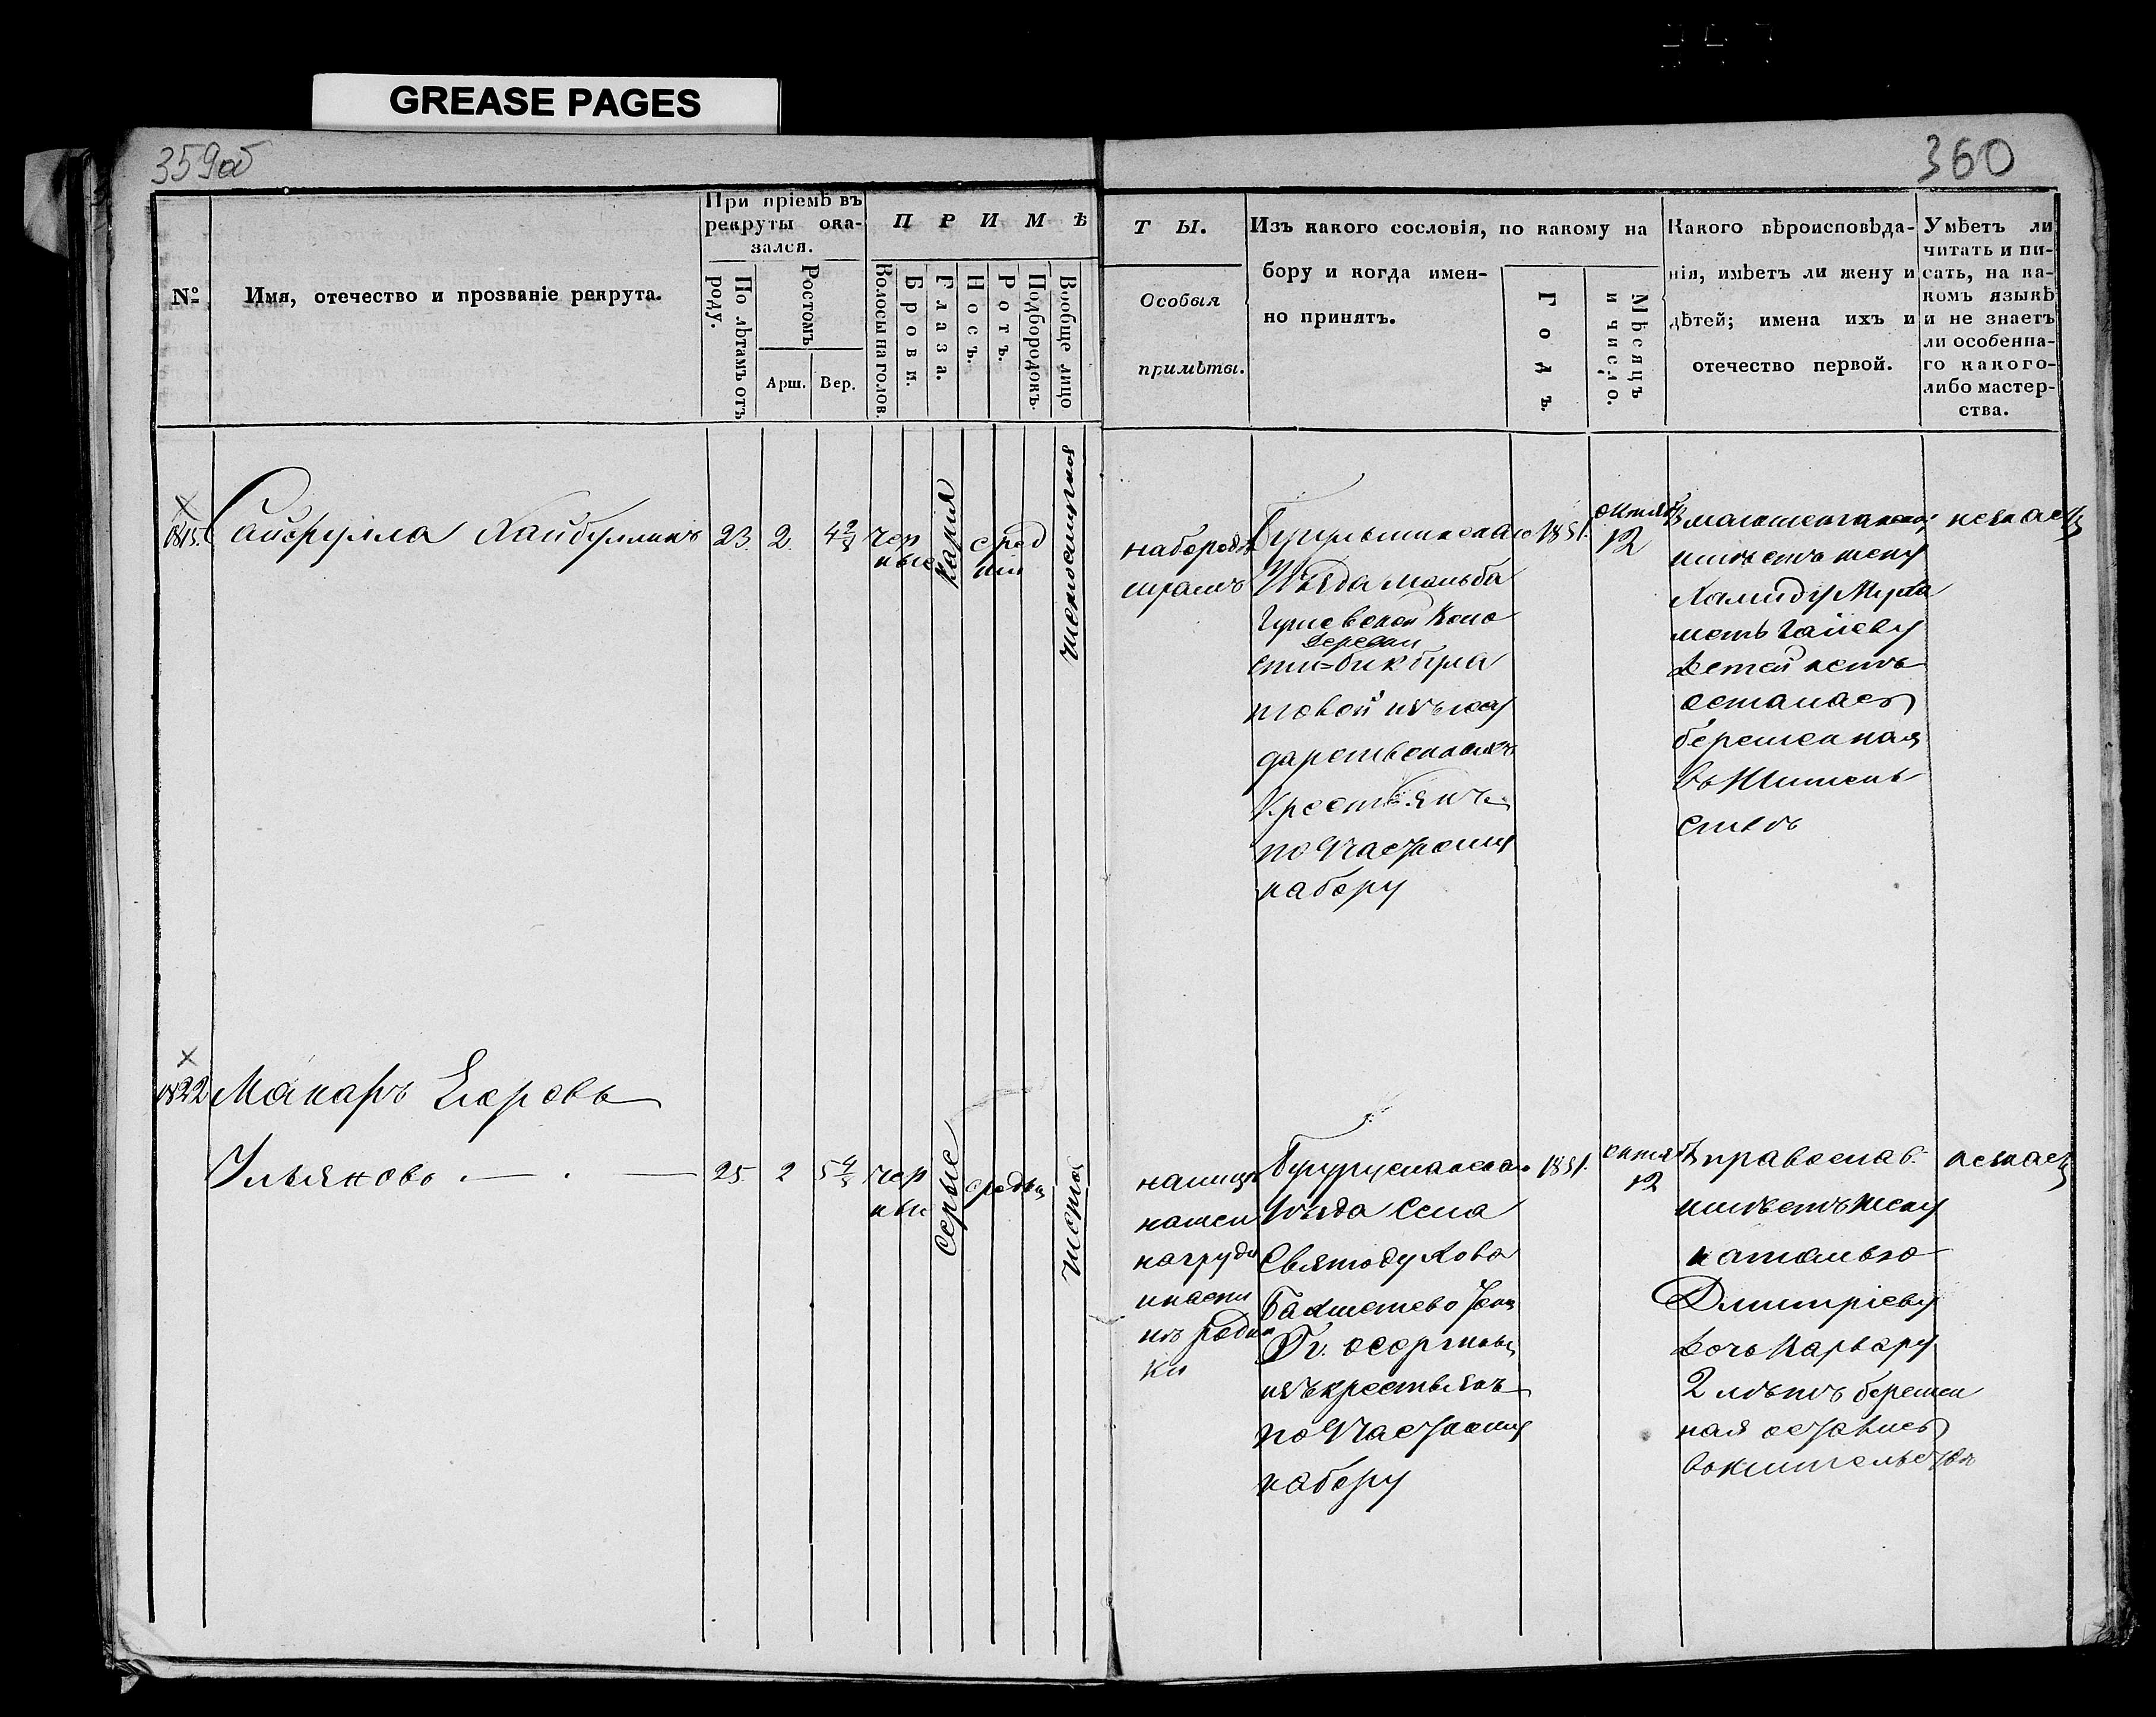 GREASE PAGES
359об
360
№
Имя, отечество и прозваніе рекрута.
При пріемѣ въ
рекруты ока-
зался.
По лѣтамъ отъ
роду.
Ростомъ
Арш.
Вер.
П Р И М Ѣ
Волосы на голов.
Брови.
Глаза.
Носъ.
Ротъ.
Подбородокъ.
Вообще лицо
Т Ы.
Особыя
примѣты.
Изъ какого сословія, по какому на
бору и когда имен-
но принятъ.
Годъ.
Мѣсяцъ
и число.
Какого вѣроисповѣда-
нія, имѣетъ ли жену и
дѣтей; имена ихъ и
отечество первой.
Умѣетъ ли
читать и пи-
сать, на ка-
комъ языкѣ
и не знаетъ
ли особенна-
го какого-
либо мастер-
ства.
Сайфулла Хайбуллинъ
23.
2.
4 2/8
чер
ные
кария
сред
ни
чистое
на бороде
шрамъ
Бугульминскаго
Уѣзда
Деревни
изъ госу
дарственныхъ
Крестьянъ
по Частному
набору
1851.
октяб
12
имѣетъ жену
Хамиду Муха
метьгалеву
детей нетъ
осталась
беременная
незнаетъ
1822
Макаръ Егоровъ
Ульяновъ
25.
2
5 4/8
чер
ные
Серые
средни
чисто
на груди
родин
ки
Бугурусланскаго
Уѣзда Села
Святодухова
Бахметево тож
изъ крестьянъ
по Частному
набору
1851.
октяб
12
православ.
имѣетъ жену
наталью
Дмитріеву
дочь Варвару
2 лѣтъ беремен
ная остались
вжительствѣ
незнаетъ